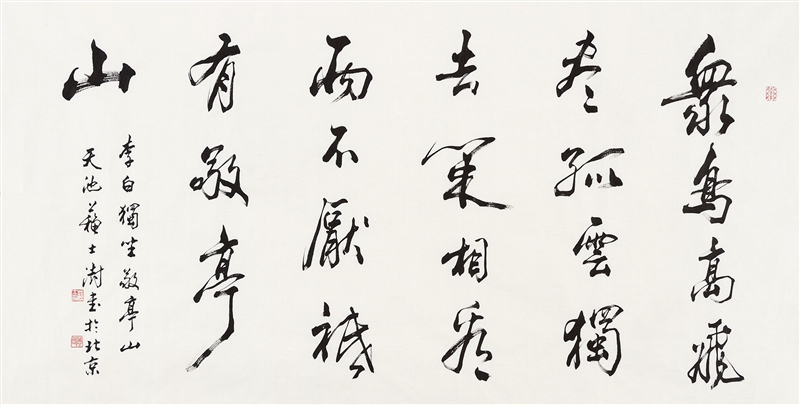 眾鳥高飛
盡孤雲獨
去閒相看
兩不厭祗
有敬亭
山
李白獨坐敬亭山
天池蘇士澍書於北京